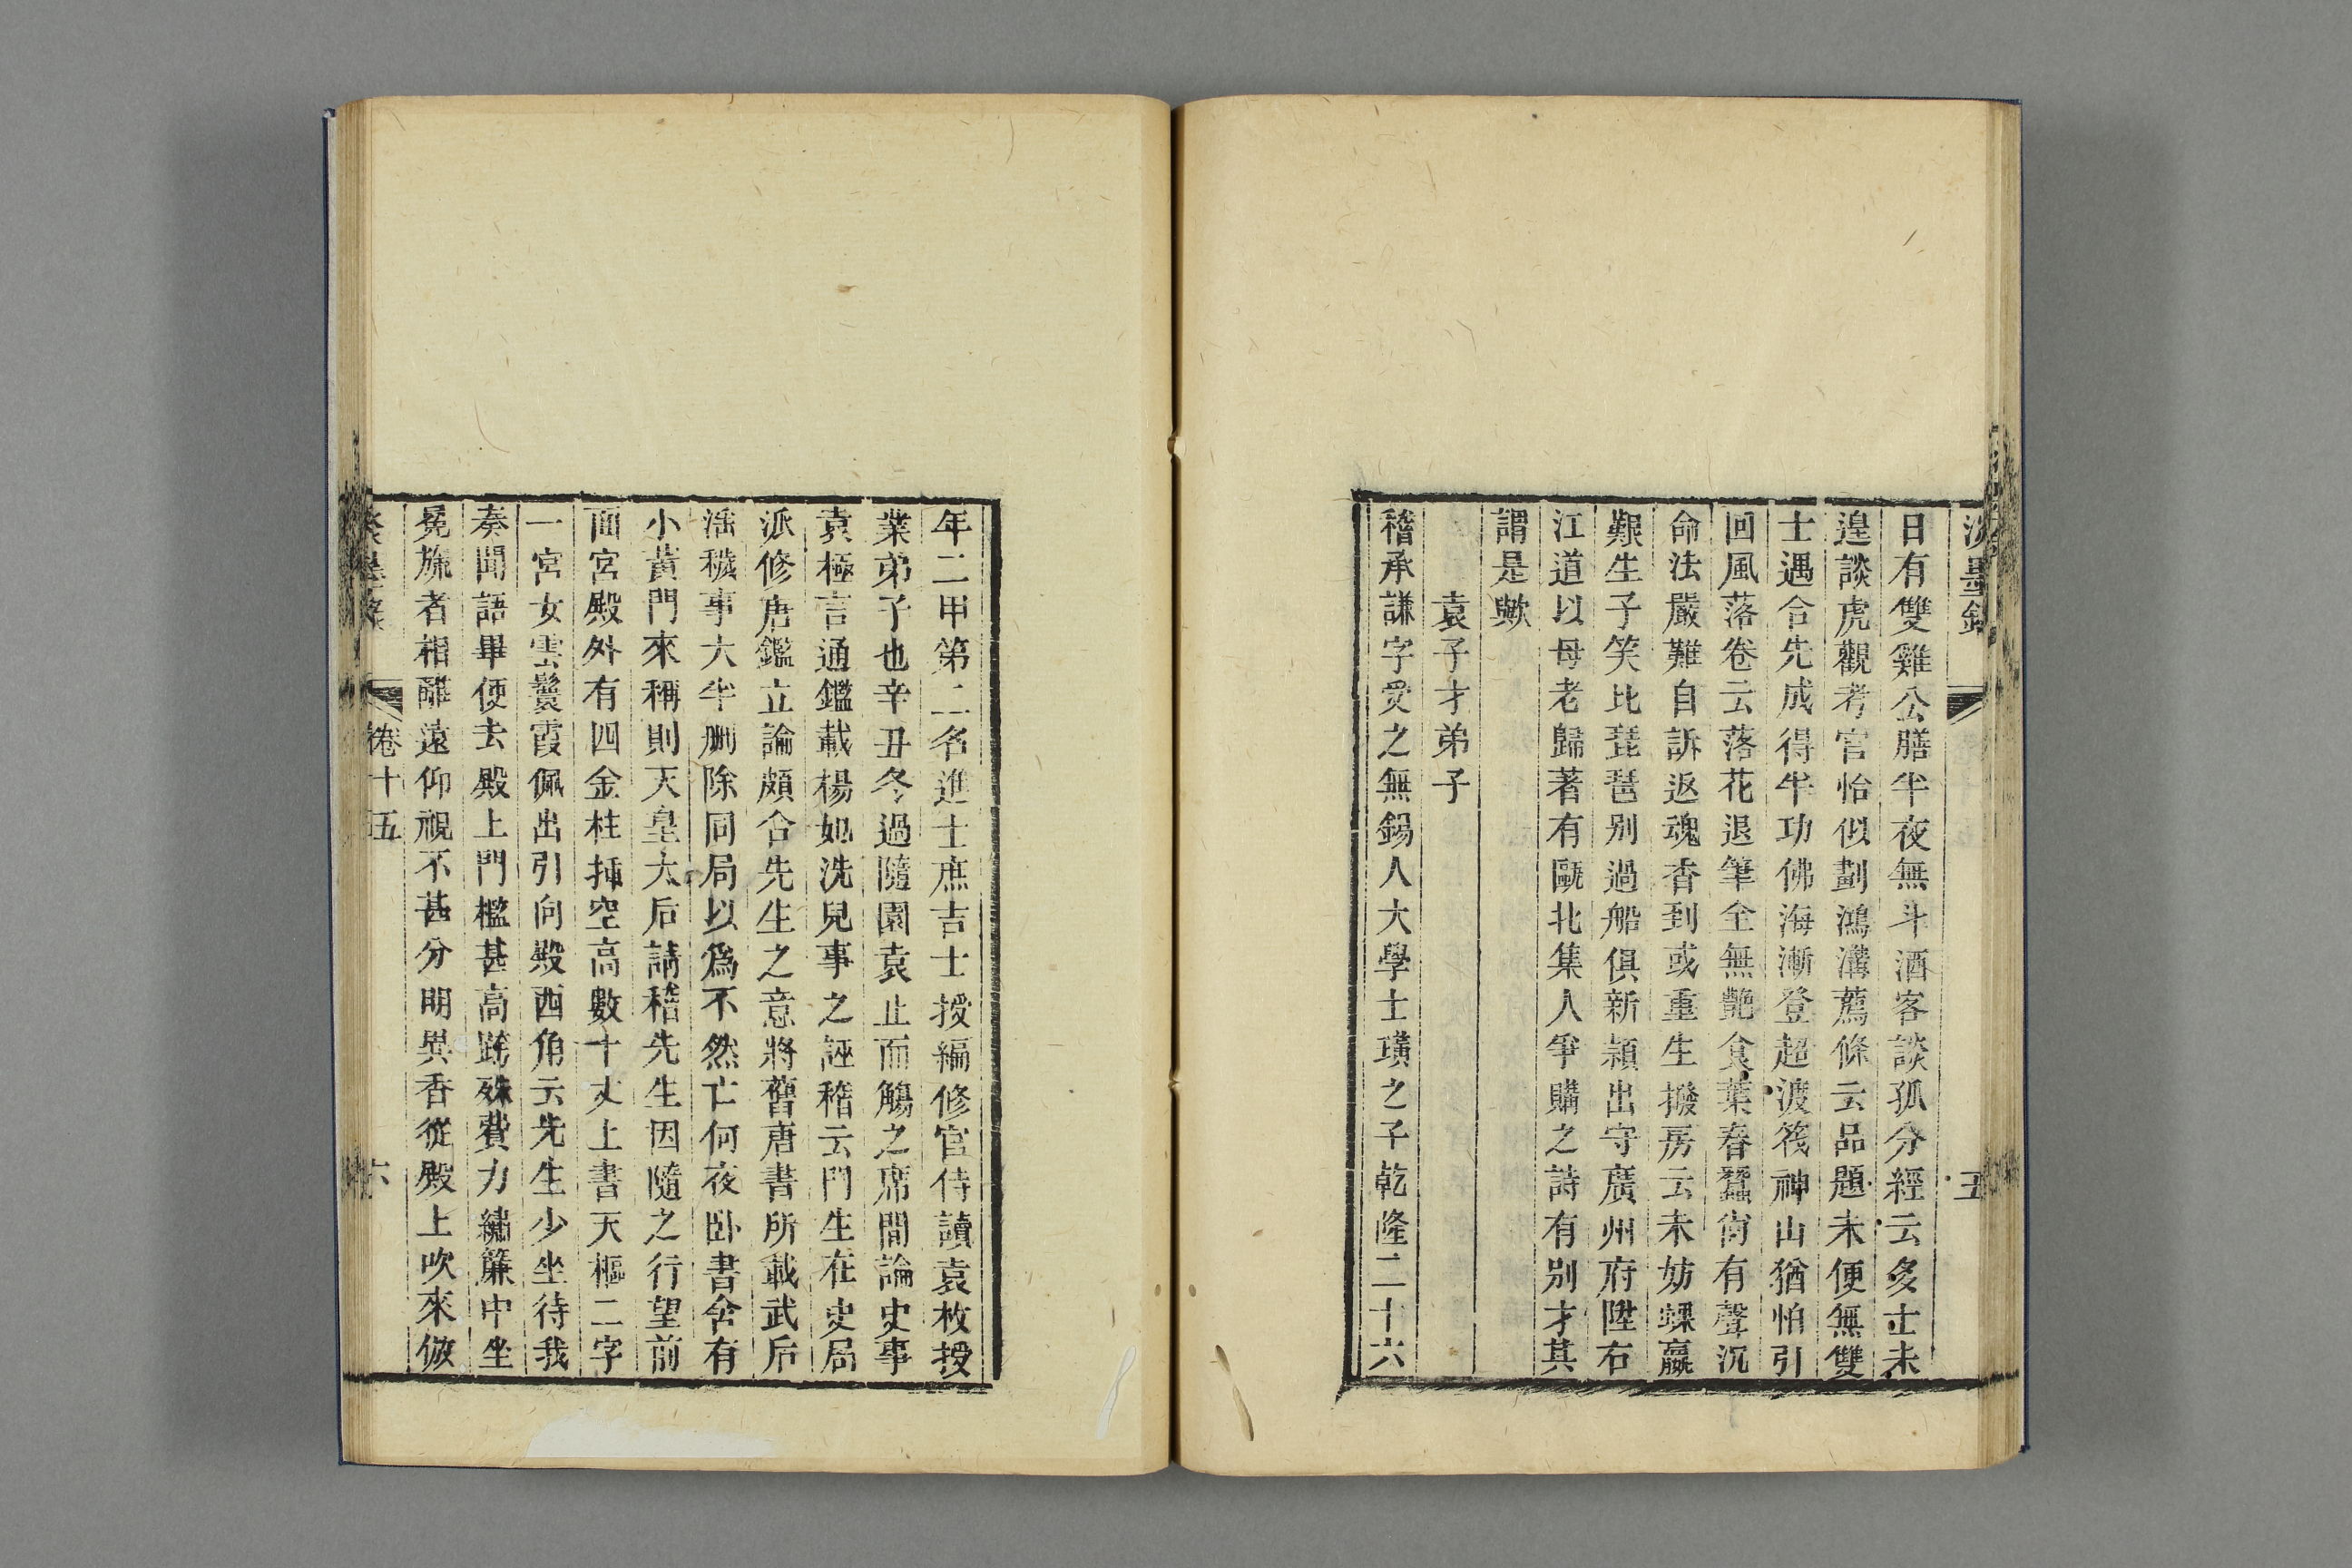 淡墨錄
五
日有雙雞公膳半夜無斗酒客談孤分經云多士未
遑談虎觀考官恰似劃鴻溝薦條云品題未便無雙
士遇合先成得半功佛海漸登超渡筏神山猶怕引
回風落卷云落花退筆全無艷食葉春蠶尙有聲沉
命法嚴難自訴返魂香到或重生撥房云未妨蜾蠃
艱生子笑比琵琶别過船俱新穎出守廣州府陞右
江道以母老歸著有甌北集人爭購之詩有别才其
謂是歟
袁子才弟子
稽承謙字受之無錫人大學士璜之子乾隆二十六
年二甲第二名進士庶吉士授編修官侍讀袁枚授
業弟子也辛丑冬過隨園袁止而觴之席間論史事
袁極言通鑑載楊妃洗兒事之誣稽云門生在史局
派修唐鑑立論頗合先生之意將舊唐書所載武后
滛穢事大半刪除同局以爲不然亡何夜卧書舍有
小黃門來稱則天皇太后請稽先生因隨之行望前
面宮殿外有四金柱揷空高數十丈上書天樞二字
一宮女雲鬟霞佩出引向殿西角云先生少坐待我
奏聞語畢便去殿上門檻甚高跨殊費力繡簾中坐
冕旒者相離遠仰視不甚分明異香從殿上吹來倣
卷十五
六